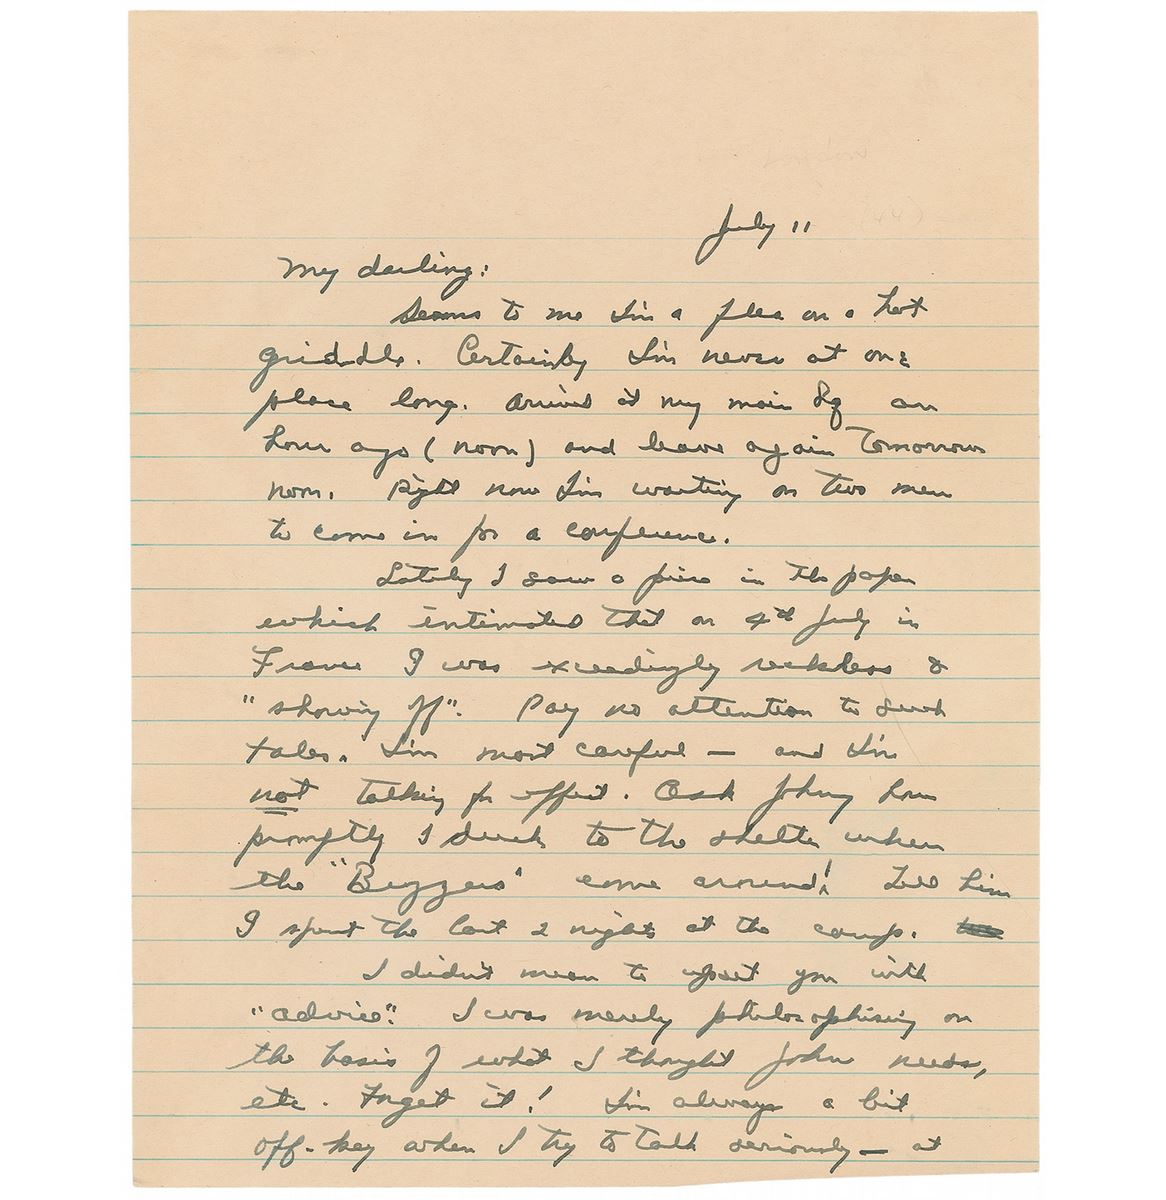 July 11
My darling:
Seems to me I'm a flea on a hot
griddle. Certainly I'm never at one
place long. Arrived at my main Hq an
hour ago (noon) and leave again Tomorrow
noon. Right now I'm waiting on two men
to come in for a conference.
Lately I saw a piece in the paper
which intimated that on 4th July in
France I was exceedingly reckless &
"showing off". Pay no attention to such
tales. I'm most careful — and I'm
not talking for effect. Ask Johnny how
promptly I duck to the shelter when
the "Buzzers" come around! Tell him
I spent the last 2 nights at the camp.
I didn't mean to upset you with
"advice". I was merely philosophising on
the basis of what I thought John needs,
etc. Forget it! I'm always a bit
off-key when I try to talk seriously — at